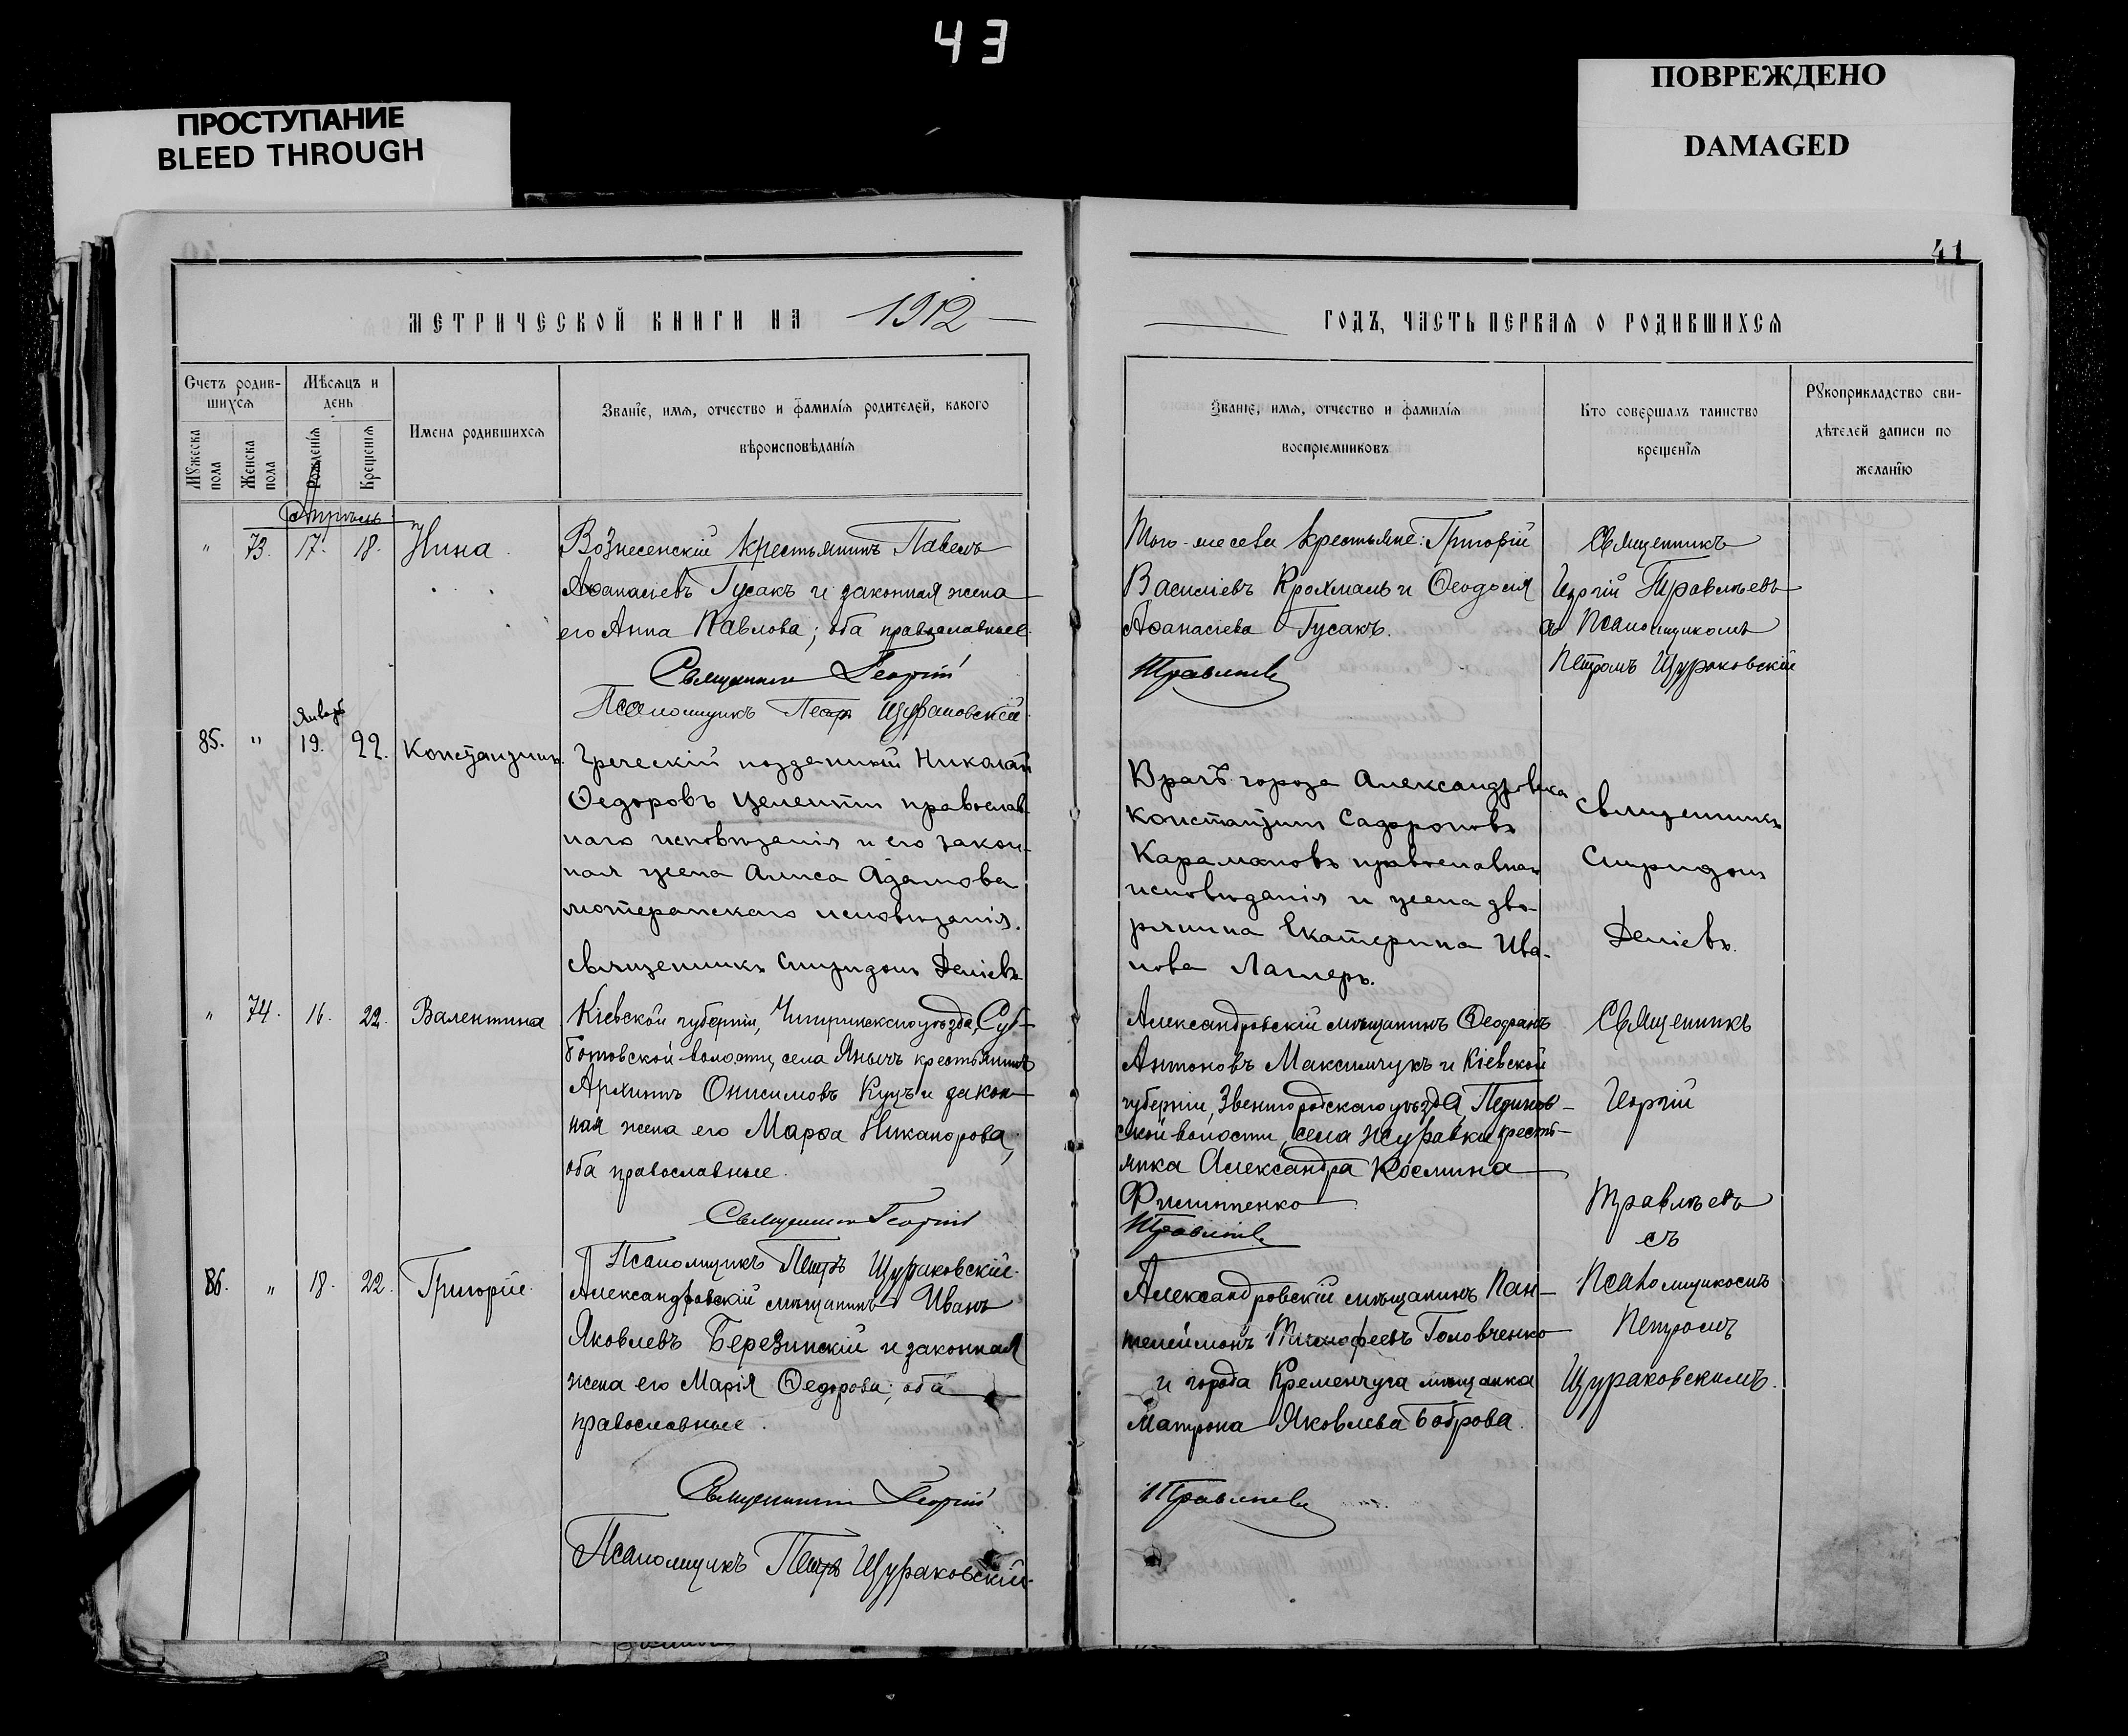 43
ПРОСТУПАНИЕ
BLEED THROUGH
ПОВРЕЖДЕНО
DAMAGED
41
МЕТРИЧЕСКОЙ КНИГИ НА 1912
ГОДЪ, ЧАСТЬ ПЕРВАЯ О РОДИВШИХСЯ
Счетъ родив-
шихся
Мѣсяцъ и
день
Мужеска пола
Женска пола
Рожденія
Крещенія
Имена родившихся
Званіе, имя, отчество и фамилія родителей, какого
вѣроисповѣданія
Званіе, имя, отчество и фамилія
воспріемниковъ
Кто совершалъ таинство
крещенія
Рукоприкладство сви-
дѣтелей записи по
желанію
Апрѣль
" 73. 17. 18. Нина
Вознесенскій крестьянинъ Павелъ
Аѳанасіевъ Гусакъ и законная жена
его Анна Павлова; оба православные.
Священникъ Георгій
Псаломщикъ Петръ Щураковскій.
Того-же села крестьяне: Григорій
Василіевъ Крохмаль и Ѳеодосія
Аѳанасіева Гусакъ.
Травлѣевъ
Священникъ
Георгій Травлѣевъ
съ Псаломщикомъ
Петромъ Щураковскій
Январь
85. " 19. 22. Константинъ.
Греческій подданный Николай
Ѳедоровъ Целенти православ-
наго исповѣданія и его закон-
ная жена Алиса Адамова
лютеранскаго исповѣданія.
Священникъ Спиридонъ Деліевъ
Врачъ города Александровска
Константинъ
Карамановъ православнаго
исповѣданія и жена дво-
рянина Екатерина Ива-
нова
Священникъ
Спиридонъ
Деліевъ.
" 74. 16. 22. Валентина
Кіевской губерніи, Чигиринскаго уѣзда, Суб-
ботовской волости, села Янычъ крестьянинъ
Архипъ Онисимовъ Куцъ и закон-
ная жена его Марѳа Никанорова,
оба православные.
Священникъ Георгій
Псаломщикъ Петръ Щураковскій.
Александровскій мѣщанинъ Ѳеофанъ
Антоновъ Максимчукъ и Кіевской
губерніи, Звенигородскаго уѣзда,
ской волости, села Журавки кресть-
янка Александра Косьмина
Филиппенко
Травлѣевъ
Священникъ
Георгій
Травлѣевъ
съ
Псаломщикомъ
Петромъ
Щураковскимъ.
86. " 18. 22. Григорій.
Александровскій мѣщанинъ Иванъ
Яковлевъ Березинскій и законная
жена его Марія Ѳедорова; оба
православные.
Священникъ Георгій
Псаломщикъ Петръ Щураковскій.
Александровскій мѣщанинъ Пан-
телеймонъ Тимофеевъ Головченко
и города Кременчуга мѣщанка
Матрона Яковлева Боброва.
Травлѣевъ